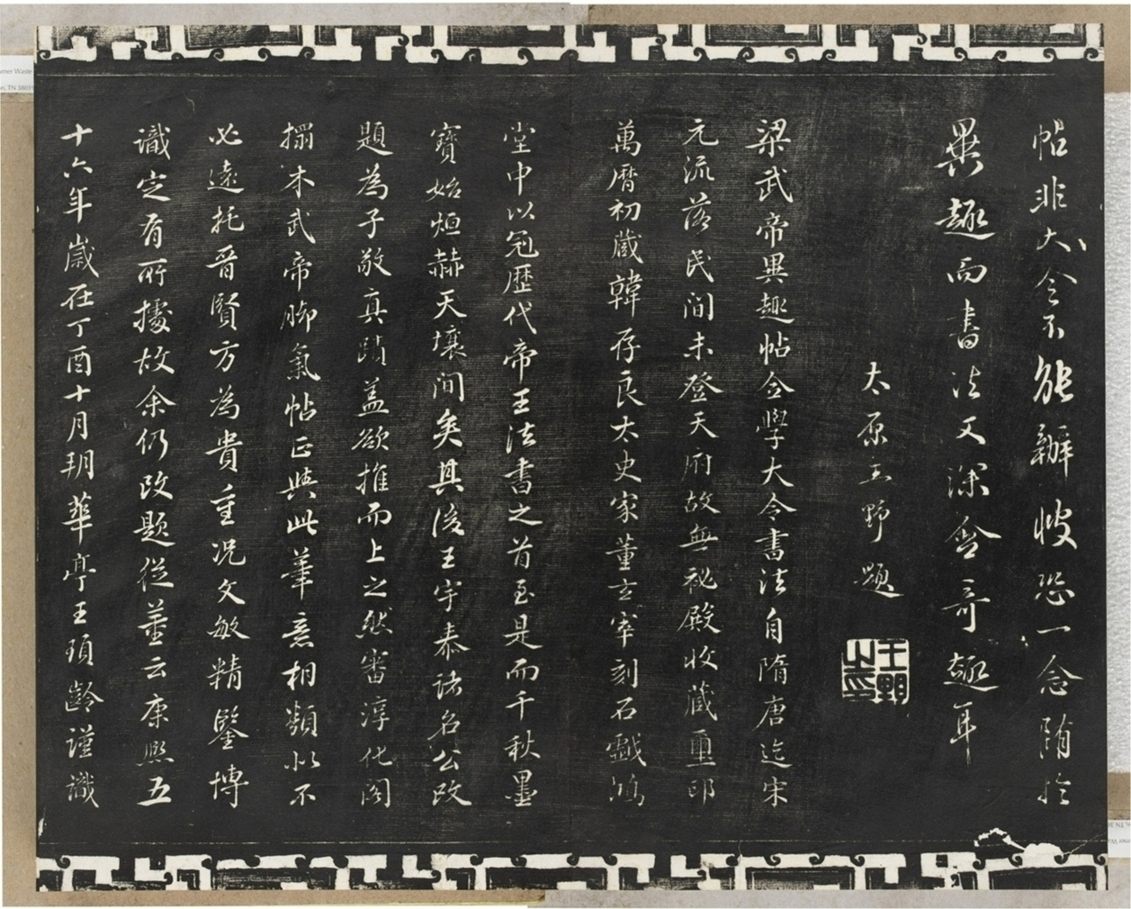 帖非大令不能辦彼恐一念堕於
異趣而書法又深含奇趣耳
太原王野題
梁武帝異趣帖全學大令書法自隋唐迄宋
元流落民間未登天府故無祕殿收藏璽印
萬曆初藏韓存良太史家董玄宰刻石戲鴻
堂中以冠歷代帝王法書之首至是而千秋墨
寶始烜赫天壤間矣其後王宇泰諸名公改
題為子敬真蹟蓋欲推而上之然審淳化閣
搨本武帝腳氣帖正與此筆意相類似不
必遠托晉賢方為貴重況文敏精鑒博
識定有所據故余仍改題從董云康熙五
十六年歲在丁酉十月朔華亭王頊齡謹識